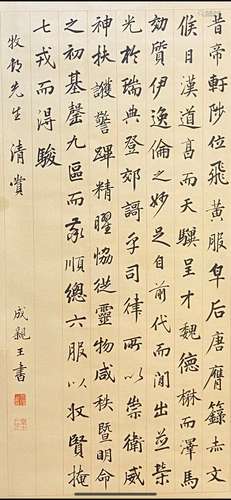 昔帝軒陟位飛黃服皁后唐膺籙赤文
候日漢道亨而天驥呈才魏德楙而澤馬
効質伊逸倫之妙足自前代而間出並榮
光於瑞典登郊謌乎司律所以崇衛威
神扶護警蹕精曜恊從靈物咸秩暨明命
之初基罄九區而率順總六服以収賢掩
七戎而得駿
牧邨先生清賞
成親王書